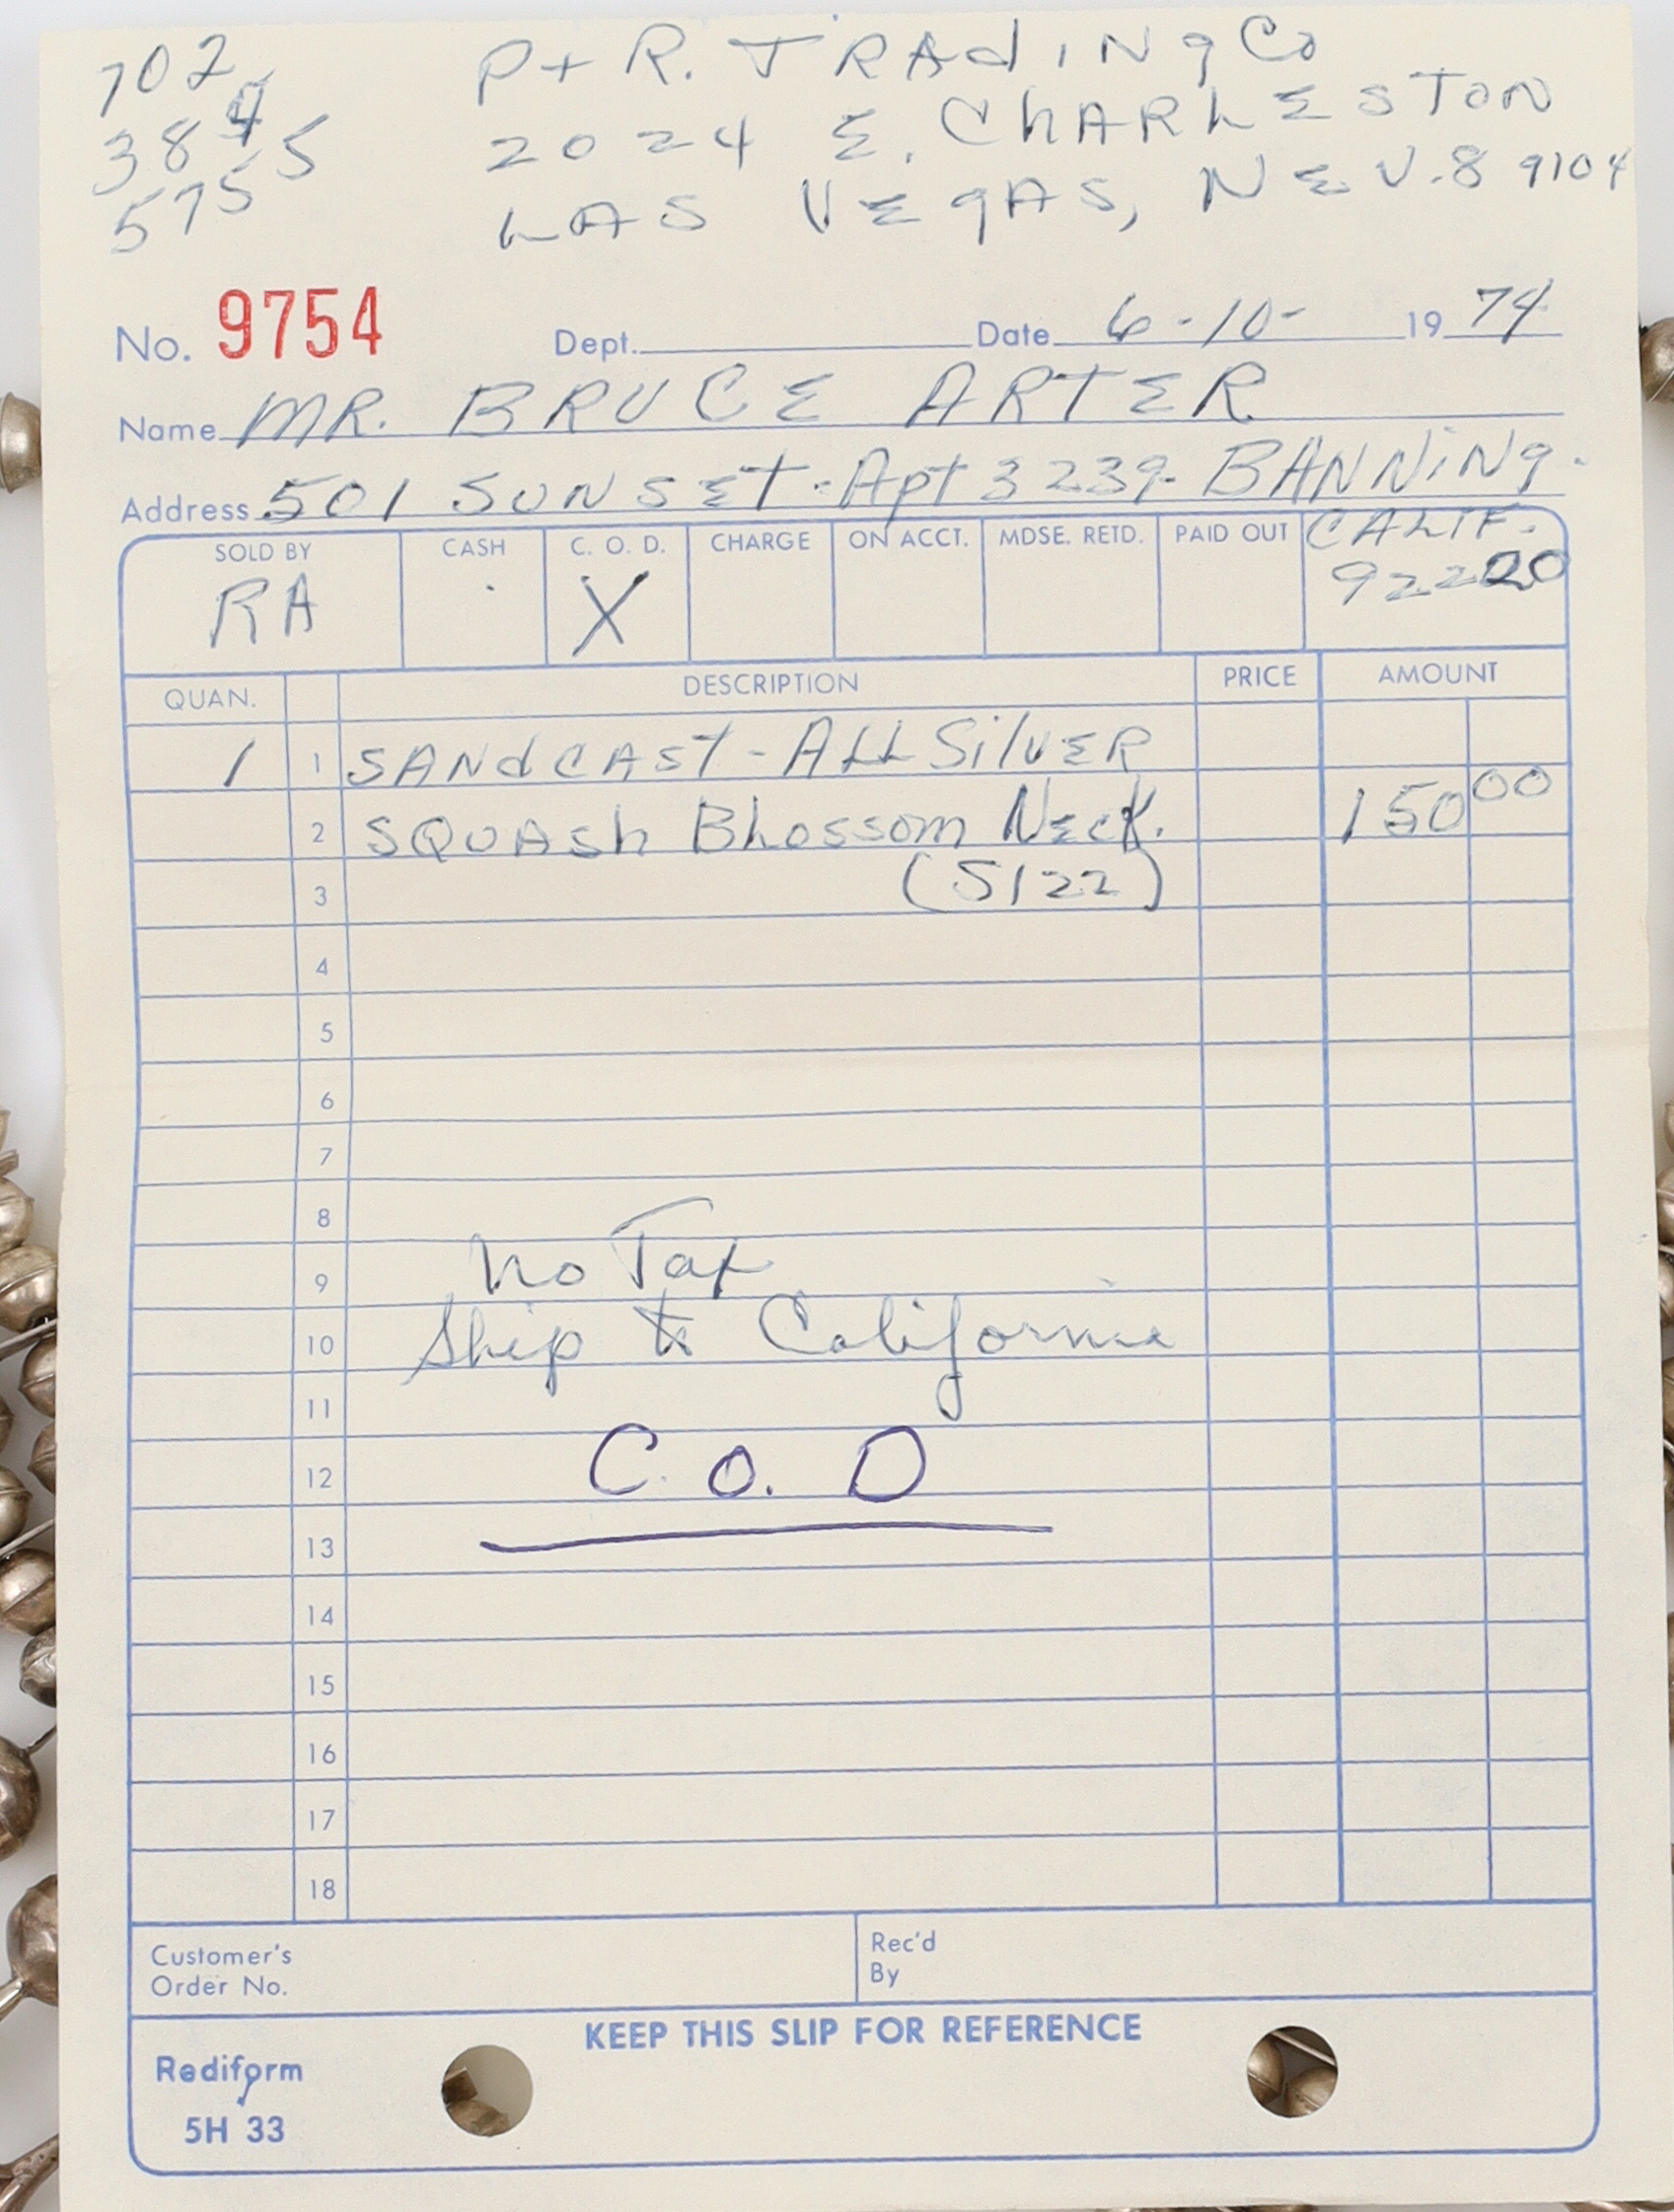 702
384
5755
P + R. TRAdiNg Co
2024 E. ChARLESTON
LAS VEgAS, NEV. 89104
No. 9754 Dept. Date 6-10- 19 74
Name MR. BRUCE ARTER
Address 501 SUNSET - Apt 3239- BANNiNg.
CALIF.
92220
SOLD BY CASH C. O. D. CHARGE ON ACCT. MDSE. RETD. PAID OUT
RA X
QUAN. DESCRIPTION PRICE AMOUNT
1 1 SANdCAST - ALL SilVER
2 SQUASh BLossom NECK. 150 00
3 (S122)
4
5
6
7
8
9 No Tax
10 Ship to California
11
12 C. O. D
13
14
15
16
17
18
Customer's
Order No.
Rec'd
By
KEEP THIS SLIP FOR REFERENCE
Rediform
5H 33